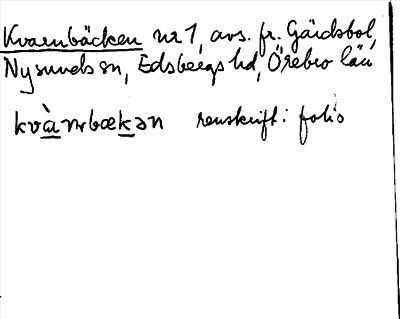 Kvarnbäcken nr 1, avs. fr. Gårdsbol,
Nysunds sn, Edsbergs hd, Örebro län
kvànrbækən renskrift: folio